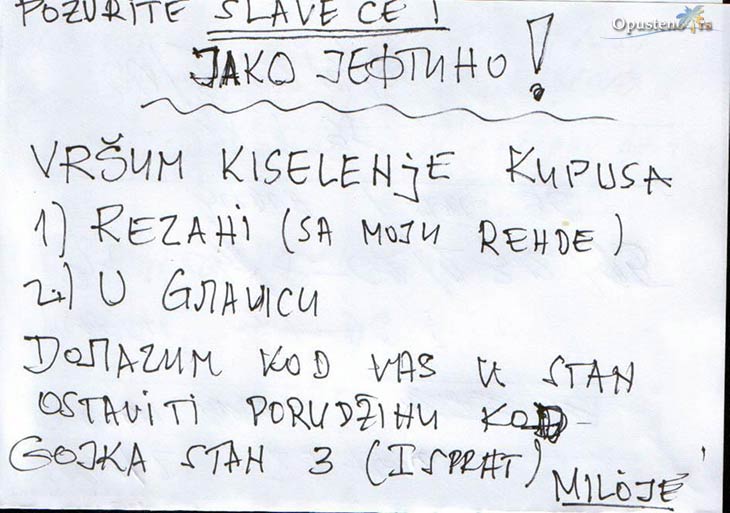 POŽURITE SLAVE ĆE !
Opusteno.rs
JAKO ЈЕФТИНО !
VRŠUM KISELENjE KUPUSA
1) REZAHI (SA MOJU REHDE)
2) U GЛАVICU
DOЛАZUM KOD VAS U STAN
OSTAVITI PORUDŽIHU KOD
GOJKA STAH 3 (I SPRAT)
MILOJE